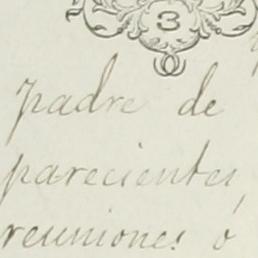 3
padre de
parecientes,
reuniones ó